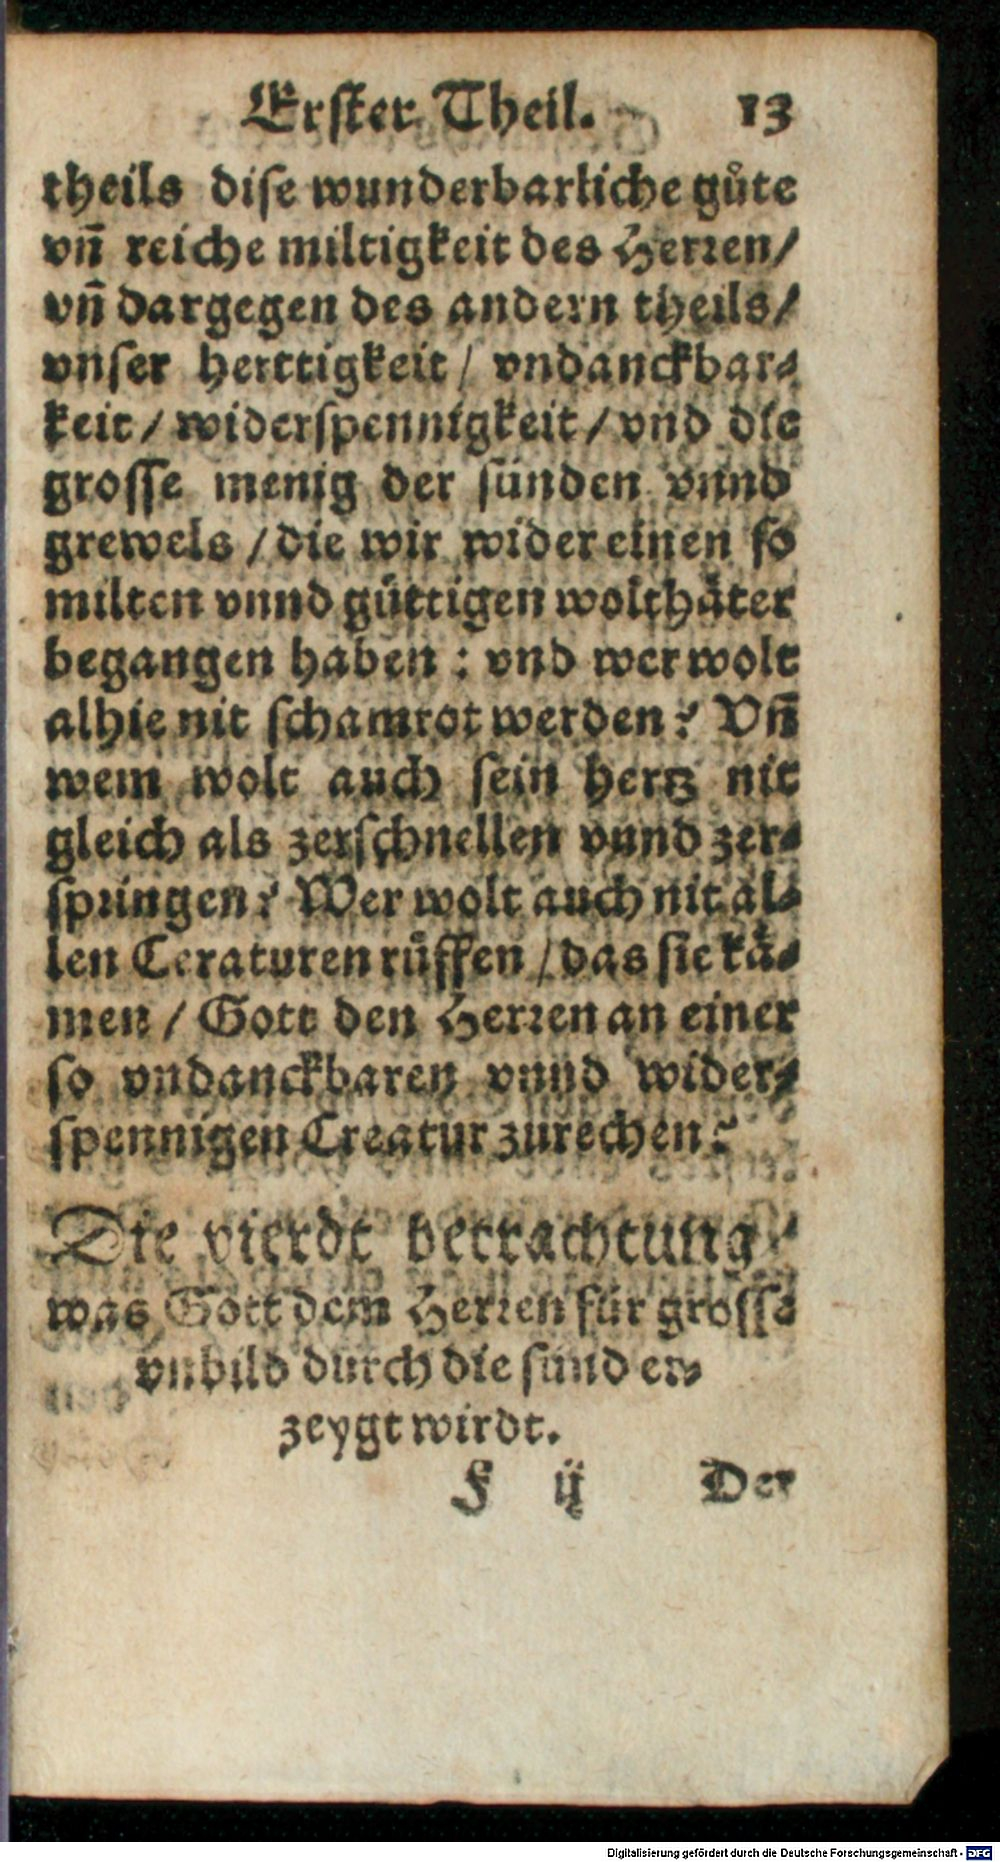 Erster Theil. 13
theils dise wunderbarliche guͤte
vñ reiche miltigkeit des Herren/
vñ dargegen des andern theils/
vnser herttigkeit / vndanckbar⸗
keit / widerspennigkeit / vnd die
grosse menig der sünden vnnd
grewels / die wir wider einen so
milten vnnd guͤttigen wolthaͤter
begangen haben : vnd wer wolt
alhie nit schamrot werden? Vñ
wem wolt auch sein hertz nit
gleich als zerschnellen vnnd zer⸗
springen? Wer wolt auch nit al⸗
len Ceraturen ruͤffen / das sie kaͤ⸗
men / Gott den Herren an einer
so vndanckbaren vnnd wider⸗
spennigen Creatur zurechen?
Die vierdt betrachtung/
was Gott dem Herren für grosse
vnbild durch die sünd er⸗
zeygt wirdt.
F ij Der
Digitalisierung gefördert durch die Deutsche Forschungsgemeinschaft - DFG